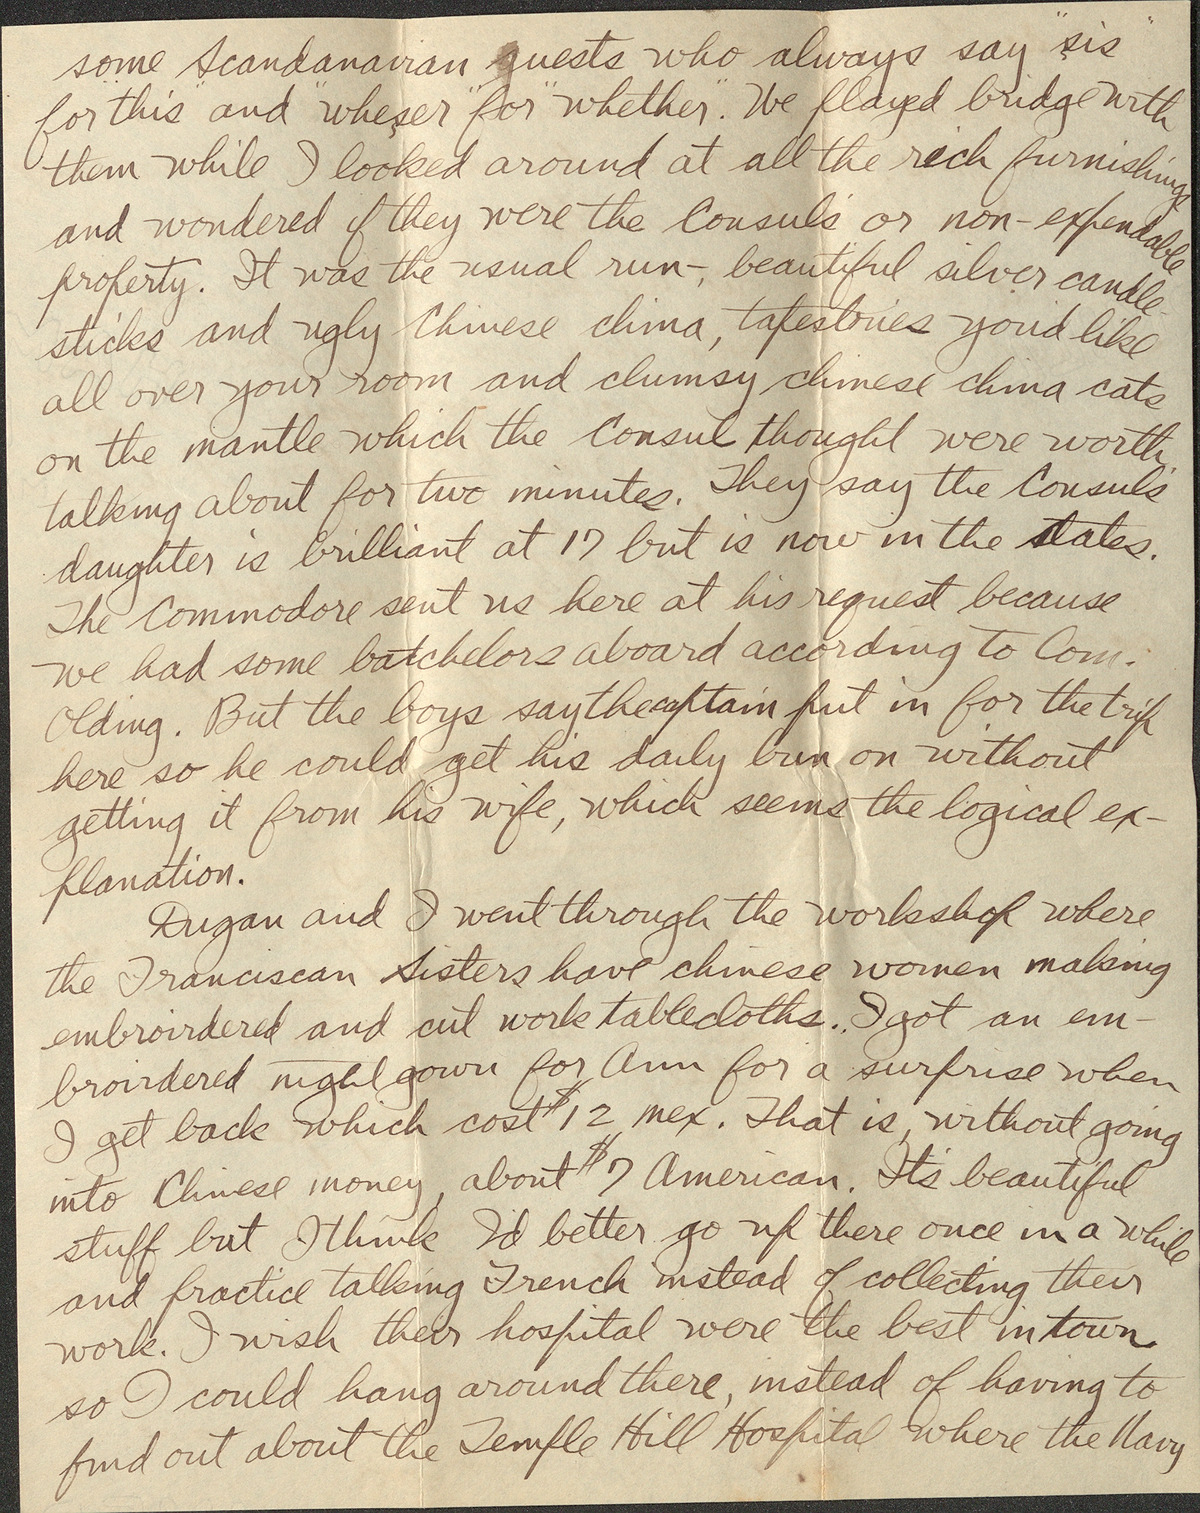 some Scandanavian guests who always say "sis"
for "this" and "wheser" for "whether". We played bridge with
them while I looked around at all the rich furnishings
and wondered if they were the Consul's or non-expendable
property. It was the usual run-, beautiful silver candle-
sticks and ugly Chinese china, tapestries you'd like
all over your room and clumsy chinese china cats
on the mantle which the Consul thought were worth
talking about for two minutes. They say the Consul's
daughter is brilliant at 17 but is now in the states.
The Commodore sent us here at his request because
we had some batchelors aboard according to Com.
Olding. But the boys say the captain put in for the trip
here so he could get his daily bun on without
getting it from his wife, which seems the logical ex-
planation.
Dugan and I went through the workshop where
the Franciscan Sisters have chinese women making
embroirdered and cut work tablecloths. I got an em-
broirdered nightgown for Ann for a surprise when
I get back which cost $12 mex. That is, without going
into Chinese money, about $7 American. It's beautiful
stuff but I think I'd better go up there once in a while
and practice talking French instead of collecting their
work. I wish their hospital were the best in town
so I could hang around there, instead of having to
find out about the Temple Hill Hospital where the Navy